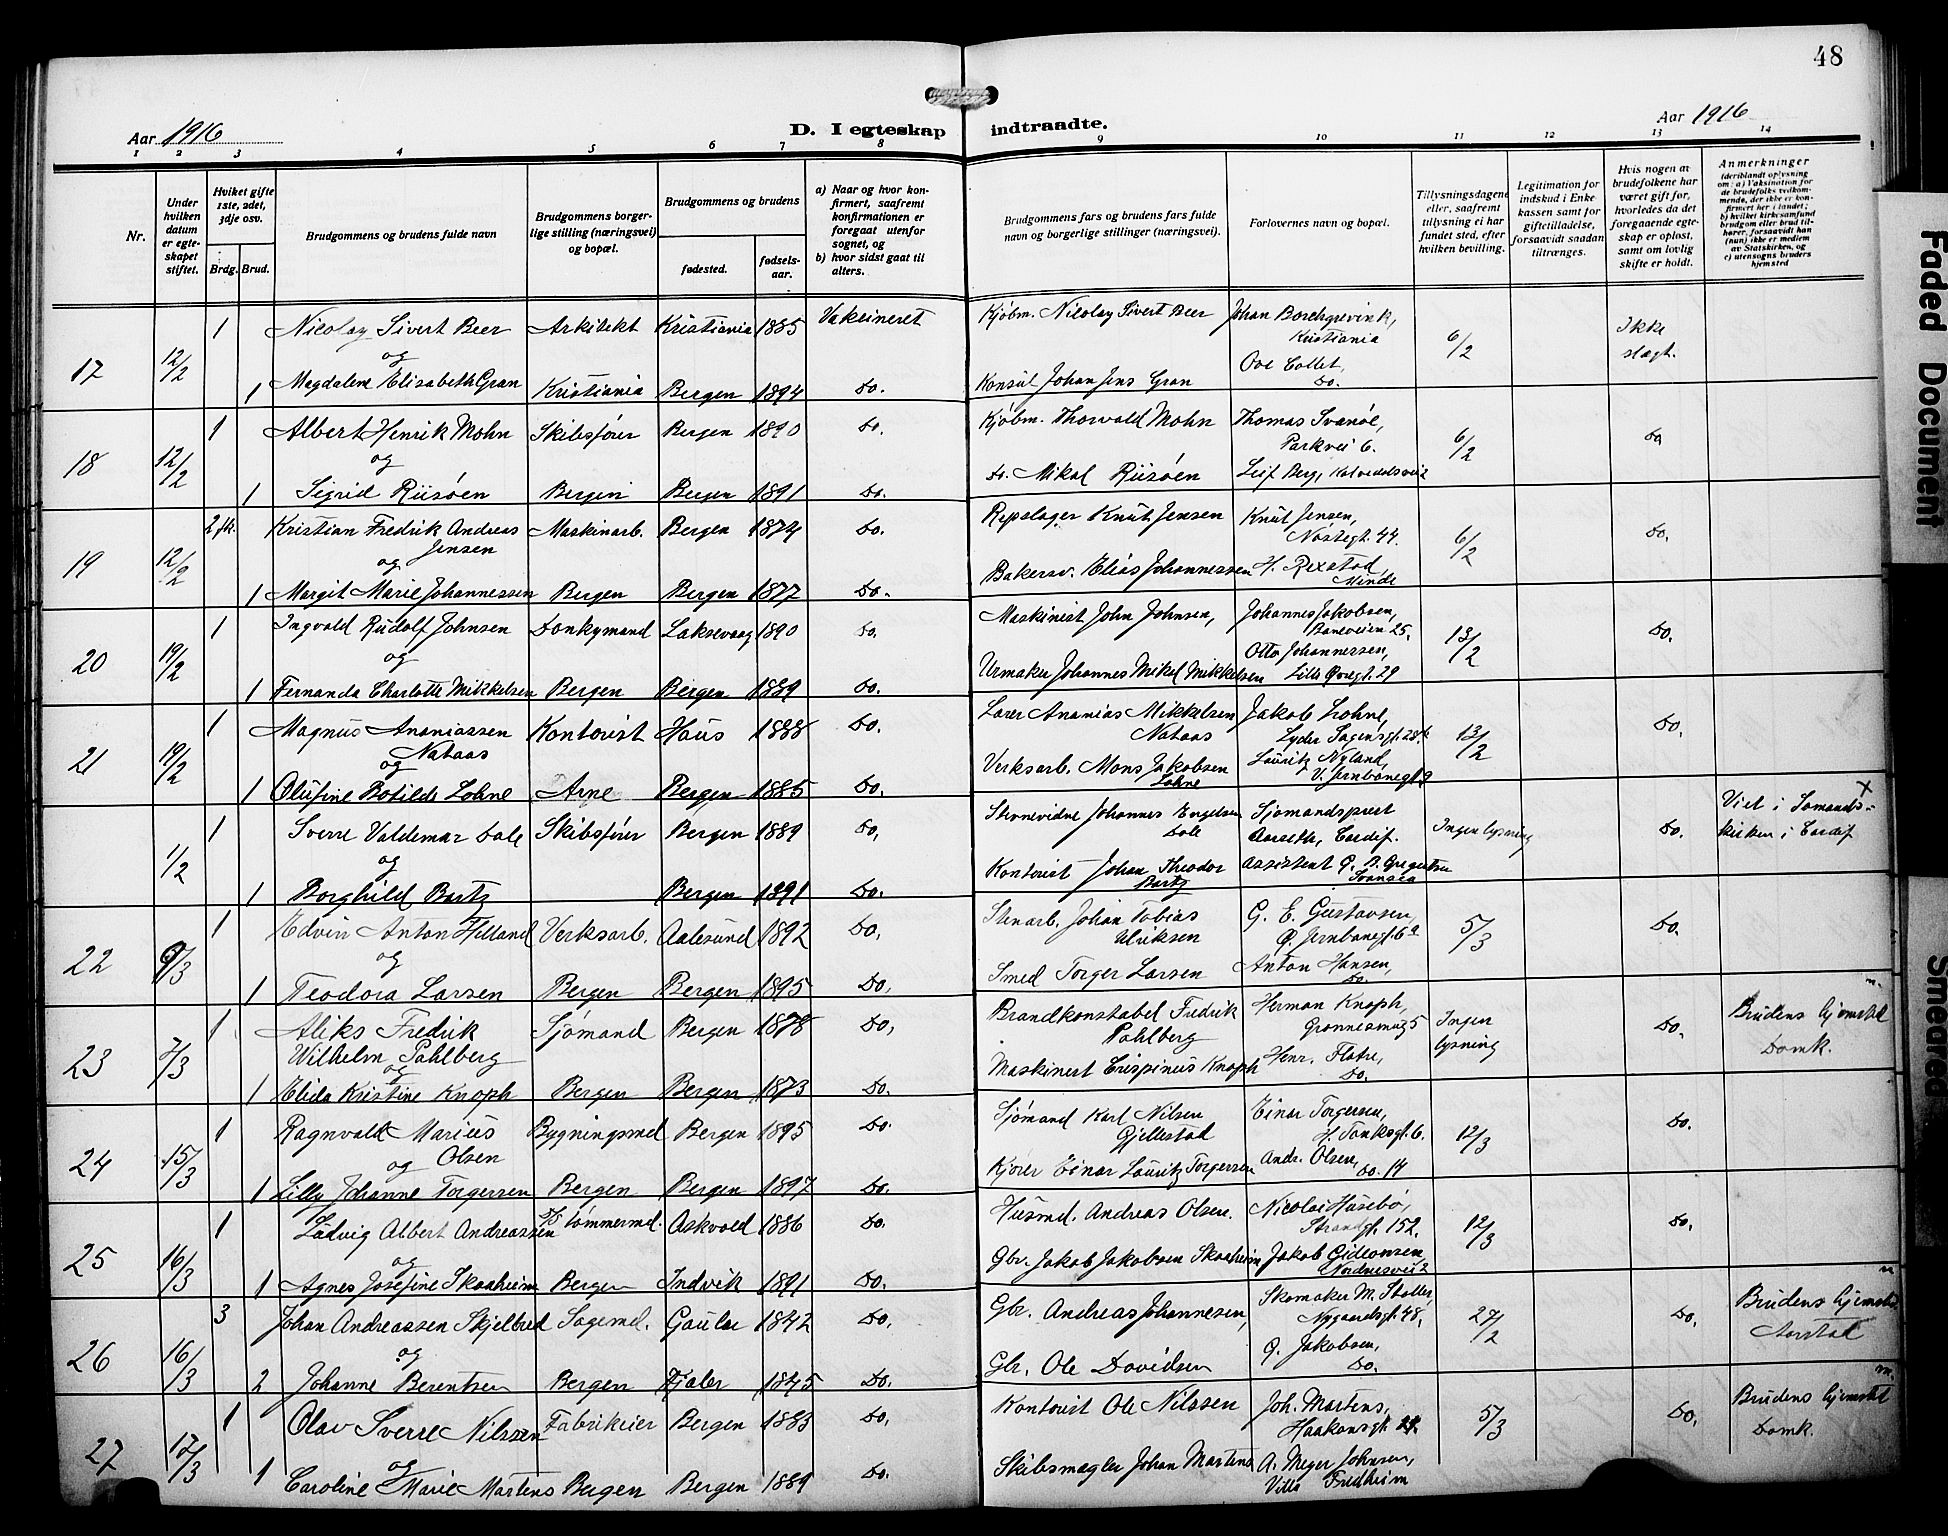 48
Aar 1916
D. I egteskap indtraadte.
Aar 1916
1 2 3 4 5 6 7 8 9 10 11 12 13 14
Nr.
Under hvilken datum er egteskapet stiftet.
Hviket gifte 1ste, 2det, 3dje osv.
Brdg. Brud.
Brudgommens og brudens fulde navn
Brudgommens borgerlige stilling (næringsvei) og bopæl.
Brudgommens og brudens
fødested. fødselsaar.
a) Naar og hvor konfirmert, saafremt konfirmationen er foregaat utenfor sognet, og
b) hvor sidst gaat til alters.
Brudgommens fars og brudens fars fulde navn og borgerlige stillinger (næringsvei).
Forlovernes navn og bopæl.
Tillysningsdagene eller, saafremt tillysning ei har fundet sted, efter hvilken bevilling.
Legitimation for indskud i Enkekassen samt for giftetilladelse, forsaavidt saadan tiltrænges.
Hvis nogen av brudefolkene har været gift før, hvorledes da det foregaaende egteskap er opløst, samt om lovlig skifte er holdt.
Anmerkninger (deriblandt oplysning om: a) Vaksination for de brudefolks vedkommende, der ikke er konfirmert her i landet; b) hvilket kirkesamfund brudgom eller brud tilhører, forsaavidt han (hun) ikke er medlem av Statskirken, og c) utensogns bruders hjemsted
17 12/2 1 Nicolay Sivert Beer Arkitekt Kristiania 1885 Vaksineret Kjøbm. Nicolay Sivert Beer Johan Borchgrevink, Kristiania 6/2 Ikke slegt.
og
1 Magdalene Elisabeth Gran Kristiania Bergen 1894 Do. Konsul Johan Jens Gran Ove Collet, Do.
18 12/2 1 Albert Henrik Mohn Skibsfører Bergen 1890 Do. Kjøbm. Thorvald Mohn Thomas Svanøe, Parkvei 6. 6/2 Do
og
1 Sigrid Riisøen Bergen Bergen 1891 Do. Do. Mikal Riisøen Leif Berg, Kalvedalsvei 2
19 12/2 2 fk. Kristian Fredrik Andreas Jensen Maskinarb. Bergen 1874 Do. Repslager Knut Jensen Knut Jensen, Nøstegt. 44. 6/2 Do.
og
1 Margit Marie Johannessen Bergen Bergen 1877 Do. Bakersv. Elias Johannessen H. Rexstad Minde
20 19/2 1 Ingvald Rudolf Johnsen Donkymand Laksevaag 1890 Do. Maskinist John Johnsen, Johannes Jakobsen, Baneveien 25. 13/2 Do.
og
1 Fernanda Charlotte Mikkelsen Bergen Bergen 1889 Do. Urmaker Johannes Mikal Mikkelsen Otto Johannessen, Lille Øvregt. 29
21 19/2 1 Magnus Ananiassen Nataas Kontorist Haus 1888 Do. Lærer Ananias Mikkelsen Nataas Jakob Lohne, Lyder Sagensgt. 28 13/2 Do.
og
1 Olufine Botilde Lohne Arne Bergen 1885 Do. Verksarb. Mons Jakobsen Lohne Lauritz Nyland, V. Jernbanegt. 9
1/2 1 Sverre Valdemar Dale Skibsfører Bergen 1889 Do, Johannes Engelsen Dale Sjømandsprest Aarseth, Cardif. Ingen lysning Do. Viet i Sømandskirken i Cardif x
og
1 Borghild Bartz Bergen 1891 Do. Kontorist Johan Theodor Bartz Assistent Svansea
22 9/3 1 Edvin Anton Helland Verksarb. Aalesund 1892 Do, Stenarb. Johan Tobias Ulriksen G. E. Gustavsen, Ø. Jernbanegt. 6a 5/3 Do.
og
1 Teodora Larsen Bergen Bergen 1895 Do, Smed Torger Larsen Anton Hansen, Do.
23 7/3 1 Aliks Fredrik Wilhelm Pahlberg Sjømand Bergen 1878 Do, Brandkonstabel Fredrik Pahlberg Herman Knoph, 5 Ingen lysning Do. Brudens hjemsted Domk.
og
1 Elida Kristine Knoph Bergen Bergen 1873 Do. Maskinist Crispinus Knoph Henr. Do.
24 15/3 1 Ragnvald Marius Olsen Bygningsmd Bergen 1895 Do. Sjømand Karl Nilsen Gjellestad Einar Torgersen, H. Tanksgt. 6. 12/3 Do.
og
1 Lilly Johanne Torgersen Bergen Bergen 1897 Do. Kjører Einar Lauritz Torgersen Andr. Olsen, Do. 14
25 16/3 1 Ludvig Albert Andreassen Tømmermd. Askvold 1886 Do. Husmd. Andreas Olsen. Nicolai Husebø, Strandgt. 152. 12/3 Do.
og
1 Agnes Josefine Skaaheim Bergen Indvik 1891 Do. Gbr. Jakob Jakobsen Skaaheim Jakob Gideonsen, Nordnesvei 2
26 16/3 3 Johan Andreassen Skjelbred Sagemd. Gaular 1842 Do. Gbr. Andreas Johannesen, Skomaker M. Nygaardsgt. 48. 27/2 Do. Brudens hjemsted Aarstad
og
2 Johanne Berentsen Bergen Fjaler 1845 Do. Gbr. Ole Davidsen Jakobsen, Do.
27 17/3 1 Olav Sverre Nilssen Fabrikeier Bergen 1883 Do. Kontorist Ole Nilssen Joh. Martens, Haakonsgt. 5/3 Do. Brudens hjemsted Domk.
og
1 Caroline Marie Martens Bergen Bergen 1889 Do. Skibsmægler Johan Martens A. Meyer Johnsen, Villa Fredheim
Faded Document
Smeared